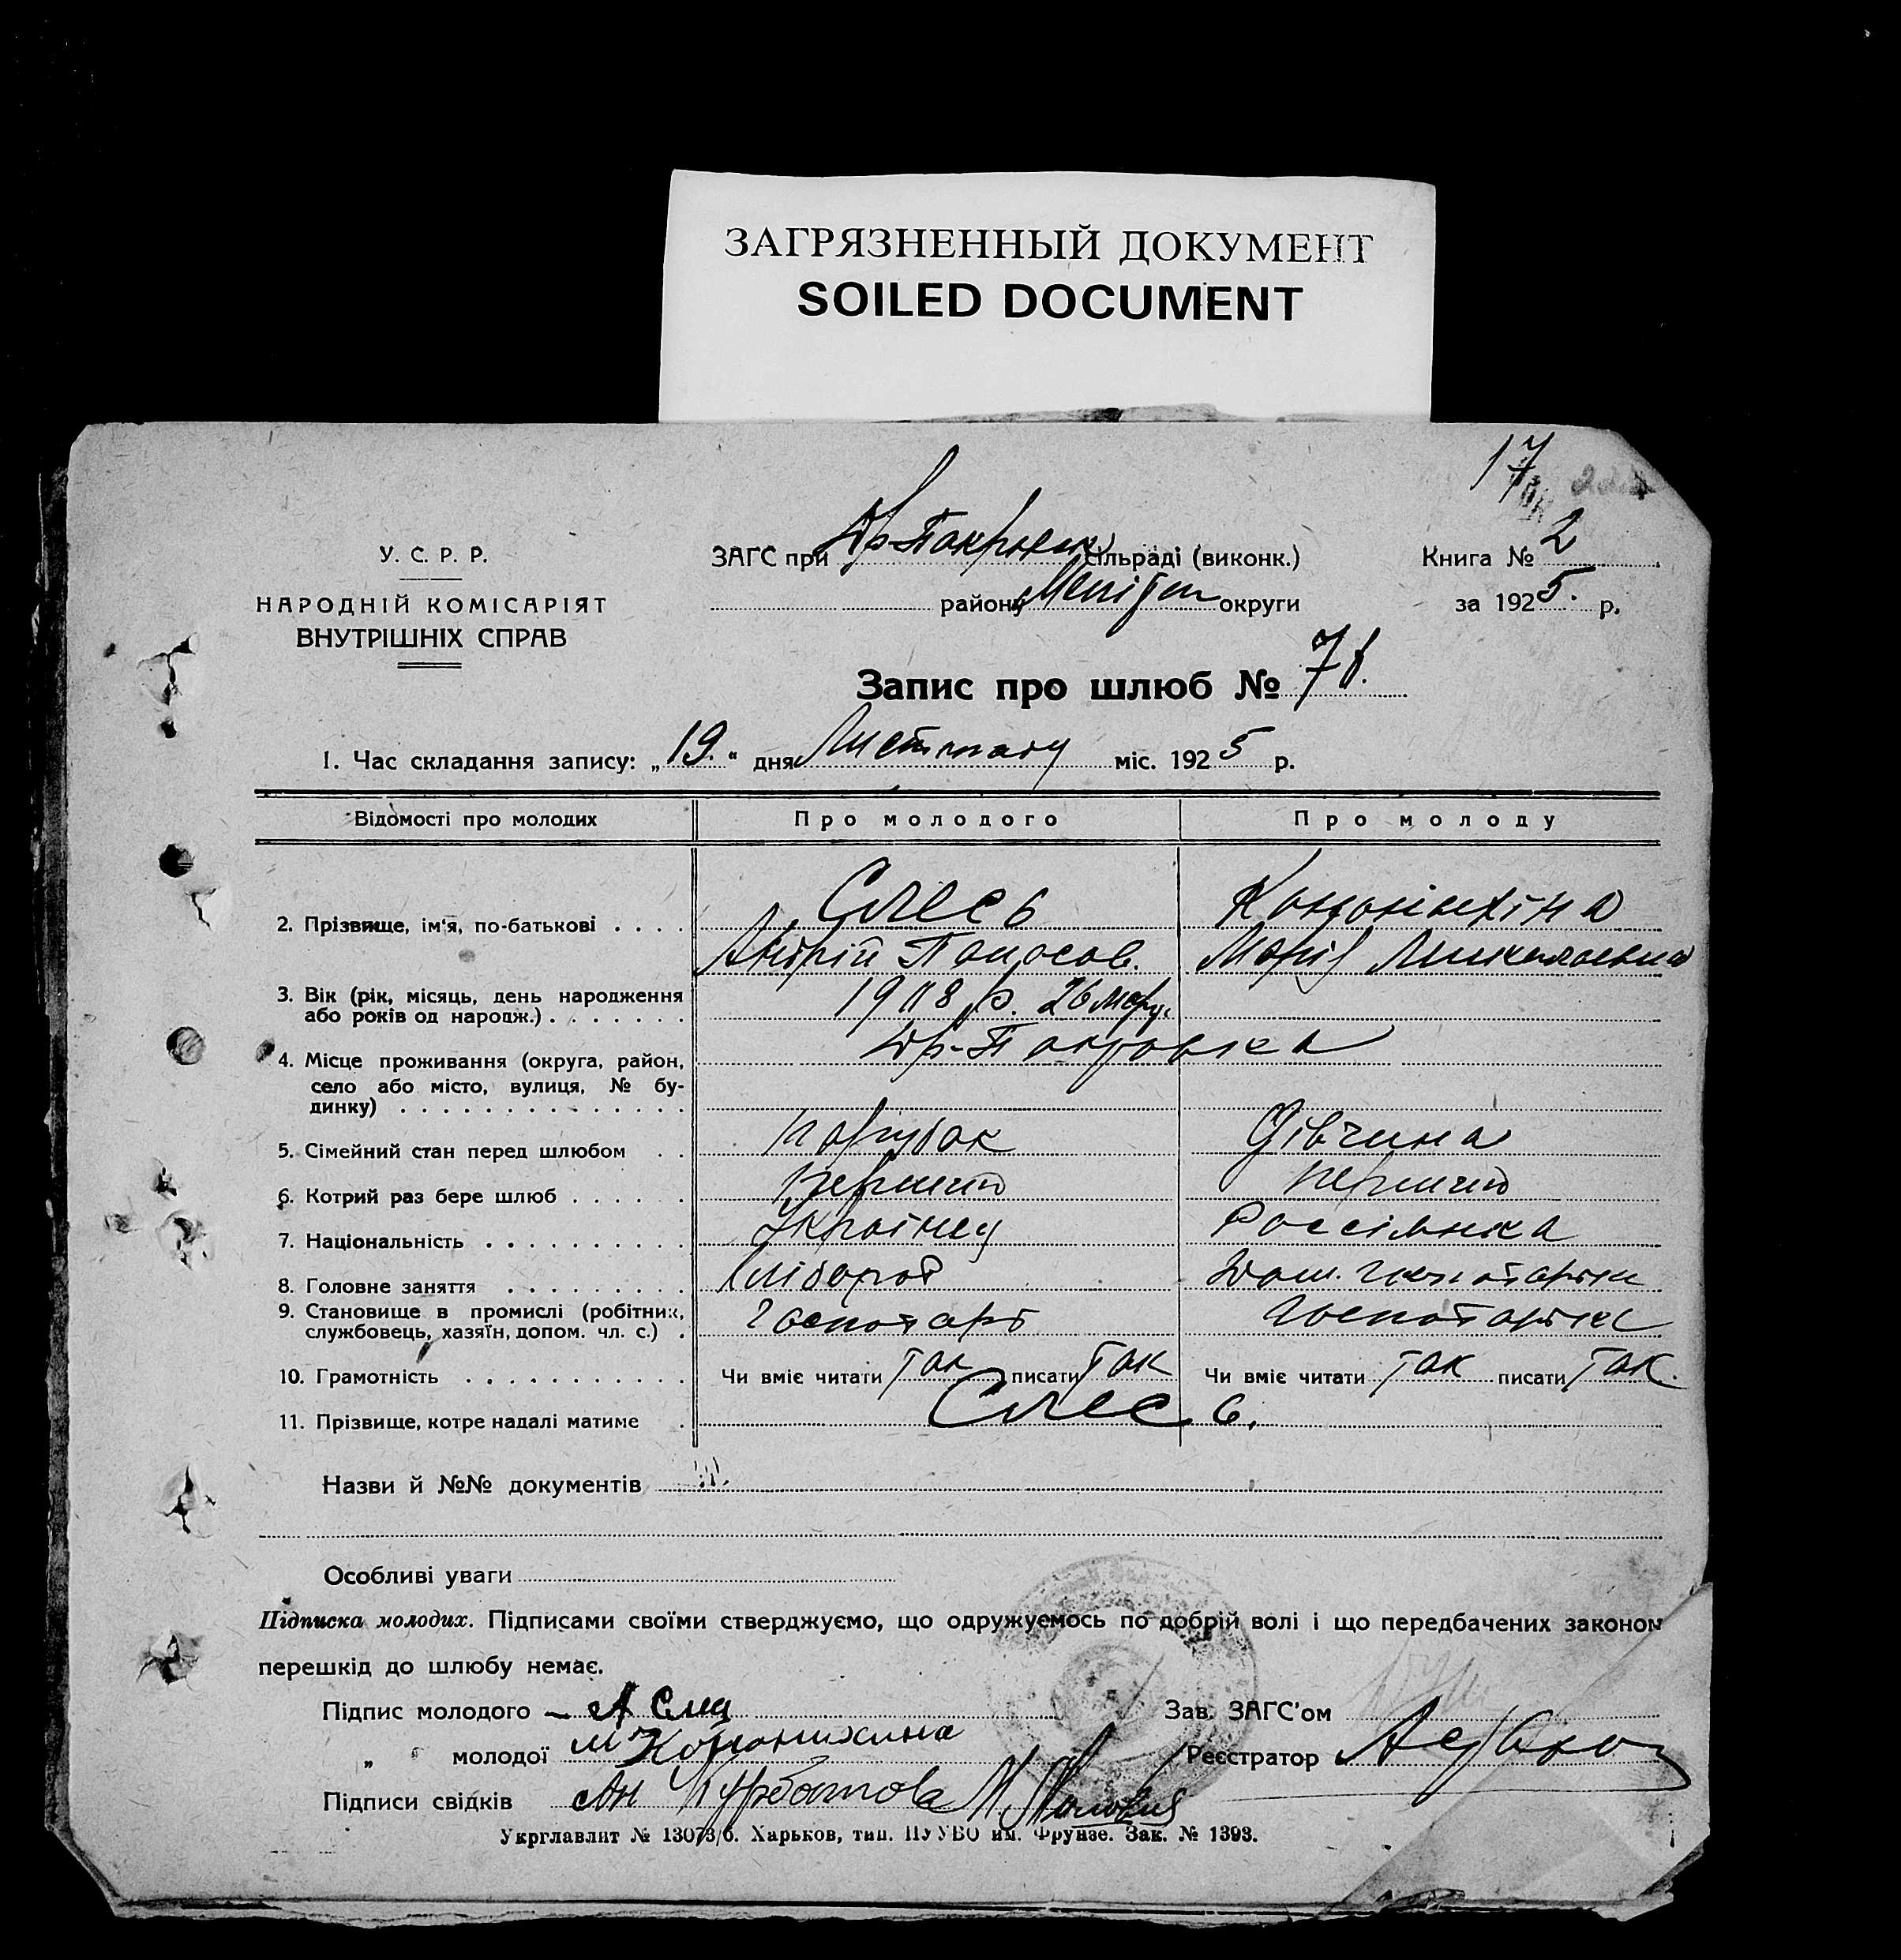 ЗАГРЯЗНЕННЫЙ ДОКУМЕНТ
SOILED DOCUMENT
17
У. С. Р. Р.
НАРОДНІЙ КОМІСАРІЯТ
ВНУТРІШНІХ СПРАВ
ЗАГС при сільраді (виконк.)
району округи
Книга № 2
за 1925. р.
Запис про шлюб №
1. Час складання запису: „19.“ дня Листопаду міс. 1925 р.
Відомості про молодих Про молодого Про молоду
2. Прізвище, ім'я, по-батькові
Слесь
Андрій Панасов. Марія Миколаєвна
3. Вік (рік, місяць, день народження
або років од народж.)
1908 р. 26
4. Місце проживання (округа, район,
село або місто, вулиця, № бу-
динку)
5. Сімейний стан перед шлюбом парубак Дівчина
6. Котрий раз бере шлюб перший перший
7. Національність Українец Россіянка
8. Головне заняття Хлібороб Дом.
9. Становище в промислі (робітник,
службовець, хазяїн, допом. чл. с.)
10. Грамотність Чи вміє читати так писати так Чи вміє читати так писати так.
11. Прізвище, котре надалі матиме Слесь.
Назви й №№ документів
Особливі уваги
Підписка молодих. Підписами своїми стверджуємо, що одружуємось по добрій волі і що передбачених законом
перешкід до шлюбу немає.
Підпис молодого
„ „ молодої М Кононихина
Підписи свідків Ан Курбатова
Зав. ЗАГС'ом
Реєстратор
Укрглавлит № 13073/б. Харьков, тип. ПУУВО им. Фрунзе. Зак. № 1393.